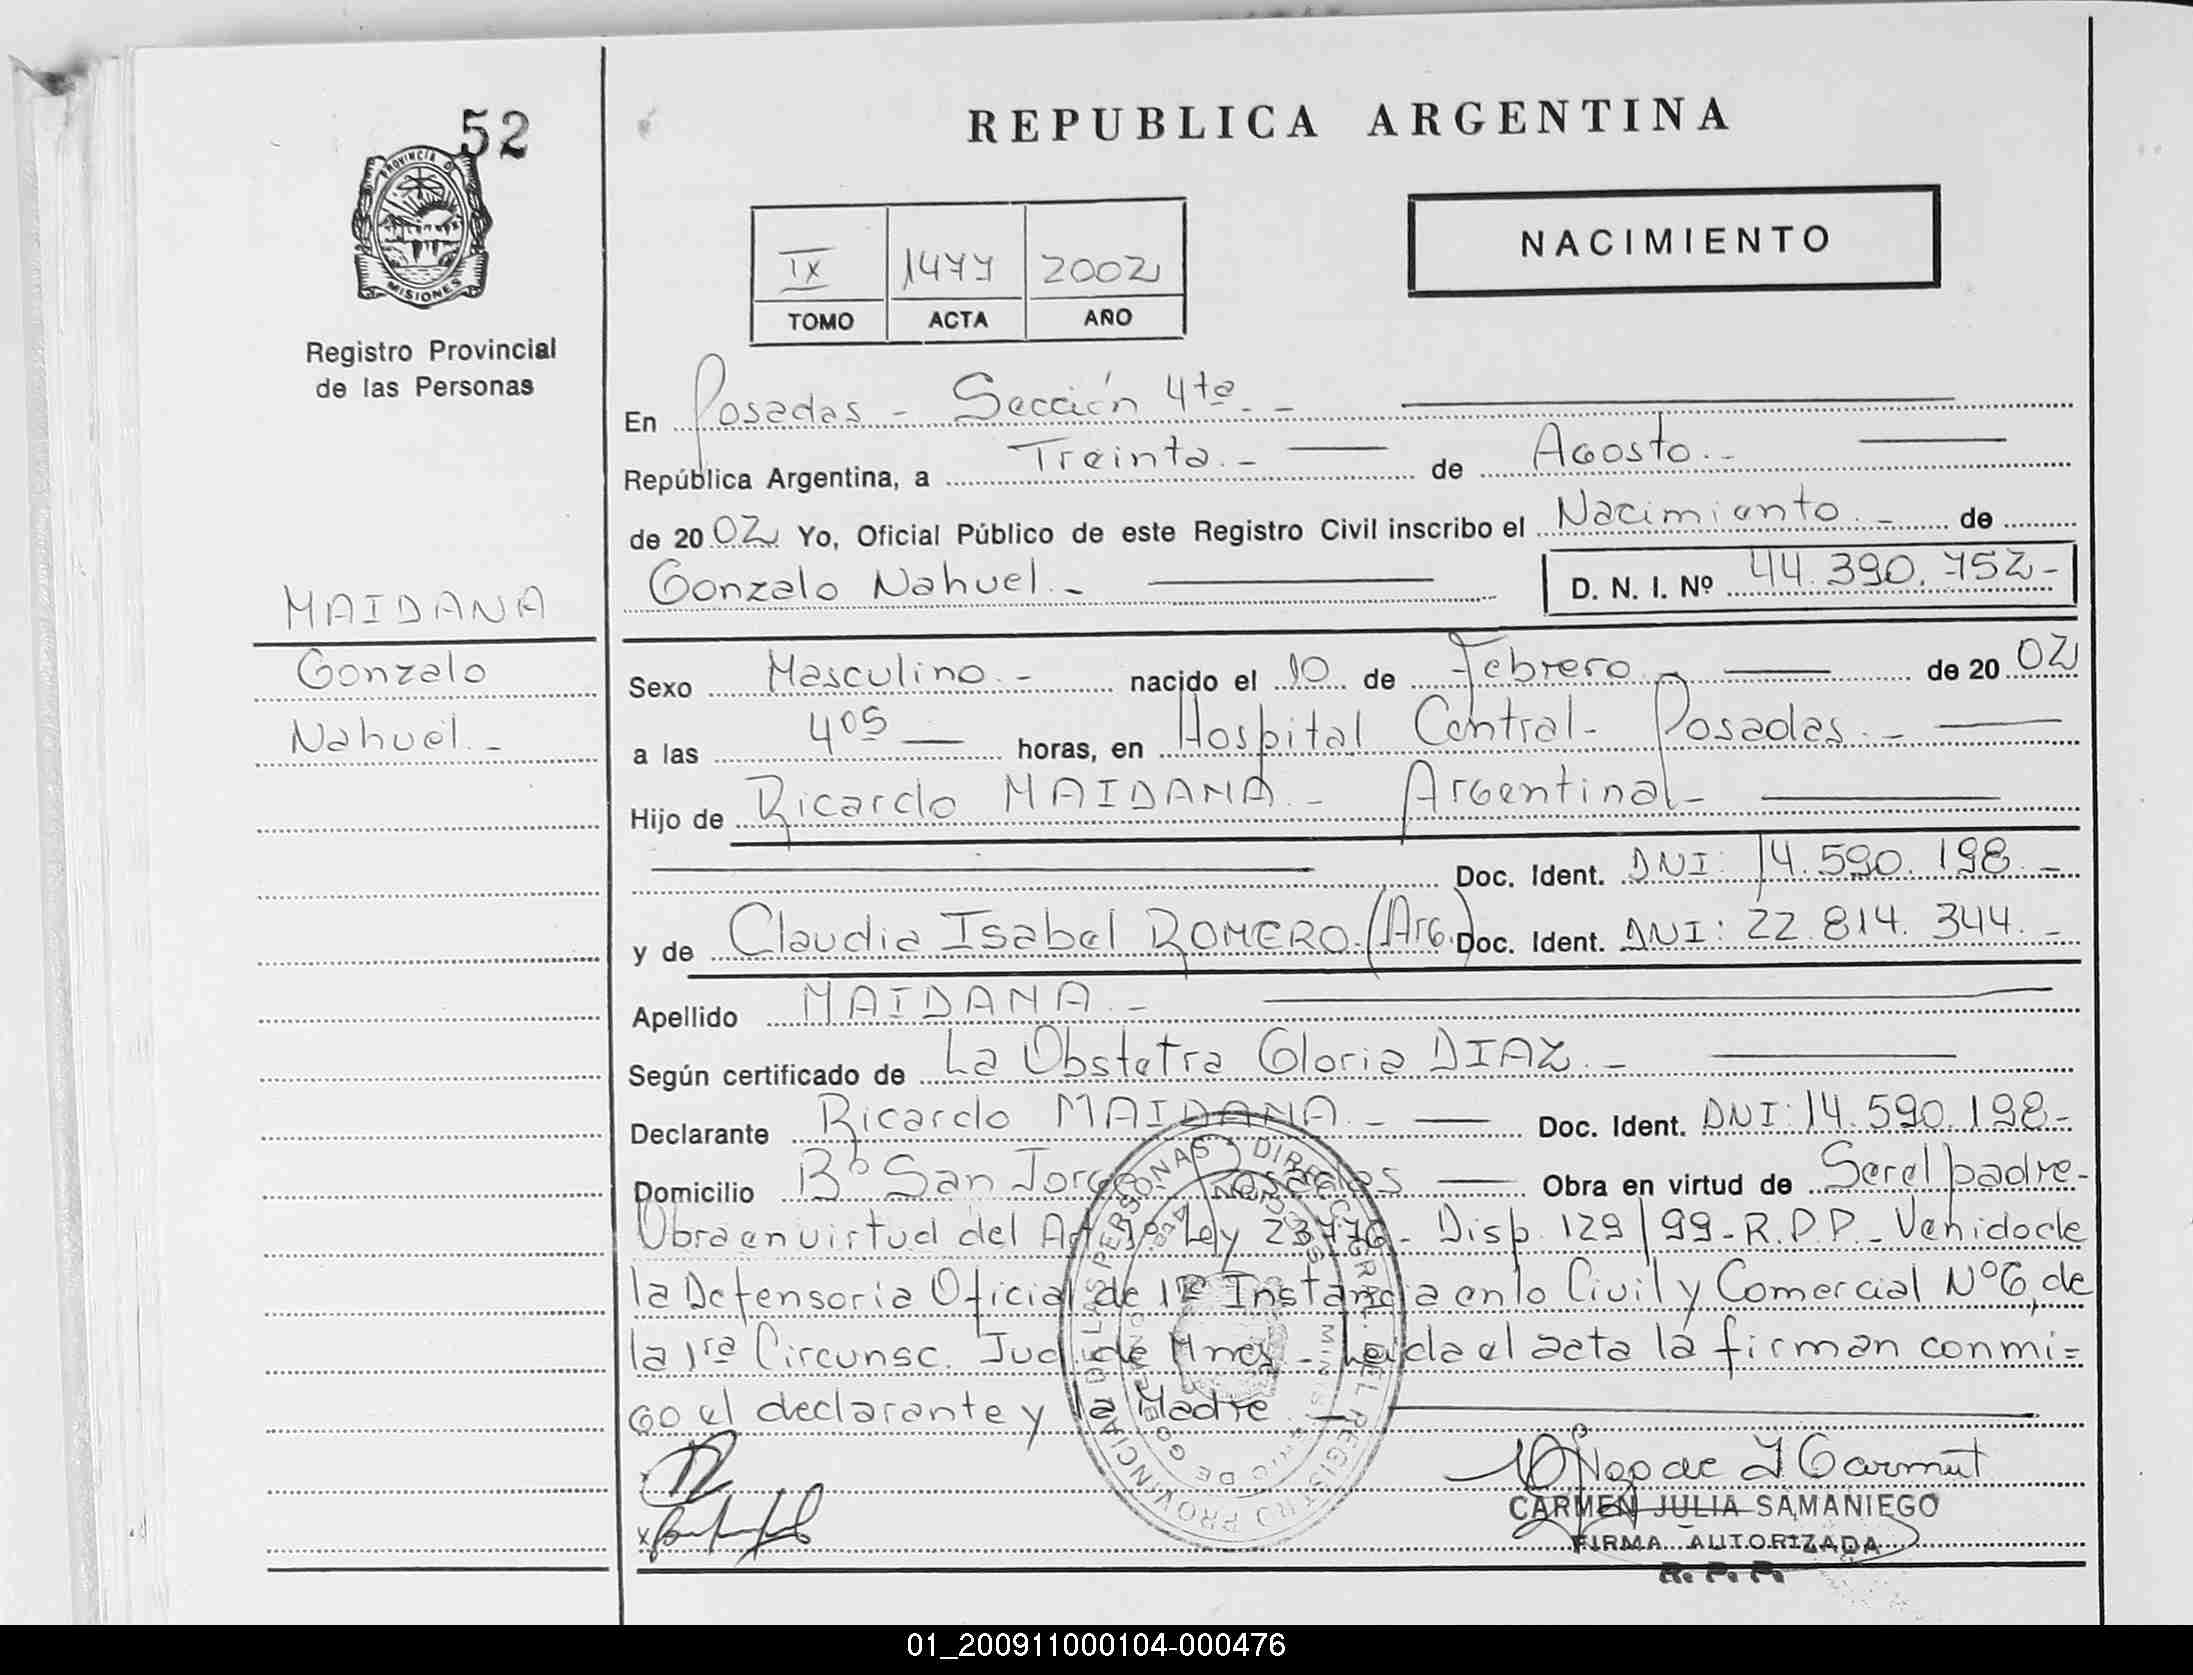 52
PROVINCIA DE
MISIONES
Registro Provincial
de las Personas
MAIDANA
Gonzalo
Nahuel.-
REPUBLICA ARGENTINA
NACIMIENTO
IX 1477 2002
TOMO ACTA AÑO
En Posadas - Sección 4ta.-
República Argentina, a Treinta.- de Agosto.-
de 2002 Yo, Oficial Público de este Registro Civil inscribo el Nacimiento.- de
Gonzalo Nahuel.- D. N. I. Nº 44.390.752-
Sexo Masculino.- nacido el 10 de Febrero.- de 2002
a las 405 horas, en Hospital Central- Posadas.-
Hijo de Ricardo MAIDANA.- Argentina-
Doc. Ident. DNI: 14.590.198.-
y de Claudia Isabel ROMERO.(Arg.) Doc. Ident. DNI: 22.814.344.-
Apellido MAIDANA.-
Según certificado de La Obstetra Gloria DIAZ.-
Declarante Ricardo MAIDANA.- Doc. Ident. DNI: 14.590.198-
Domicilio Bº San Jorge Posadas Obra en virtud de Ser el padre-
Obra en virtud del Art 1º Ley 23776- Disp. 129/99-R.P.P.- Venido de
la Defensoria Oficial de 1ra Instancia en lo Civil y Comercial Nº6, de
la 1ra Circunsc. Jud. de Mnes.- Leida el acta la firman conmi=
go el declarante y la Madre.-
CARMEN JULIA SAMANIEGO
FIRMA AUTORIZADA
R. P. P.
01_200911000104-000476